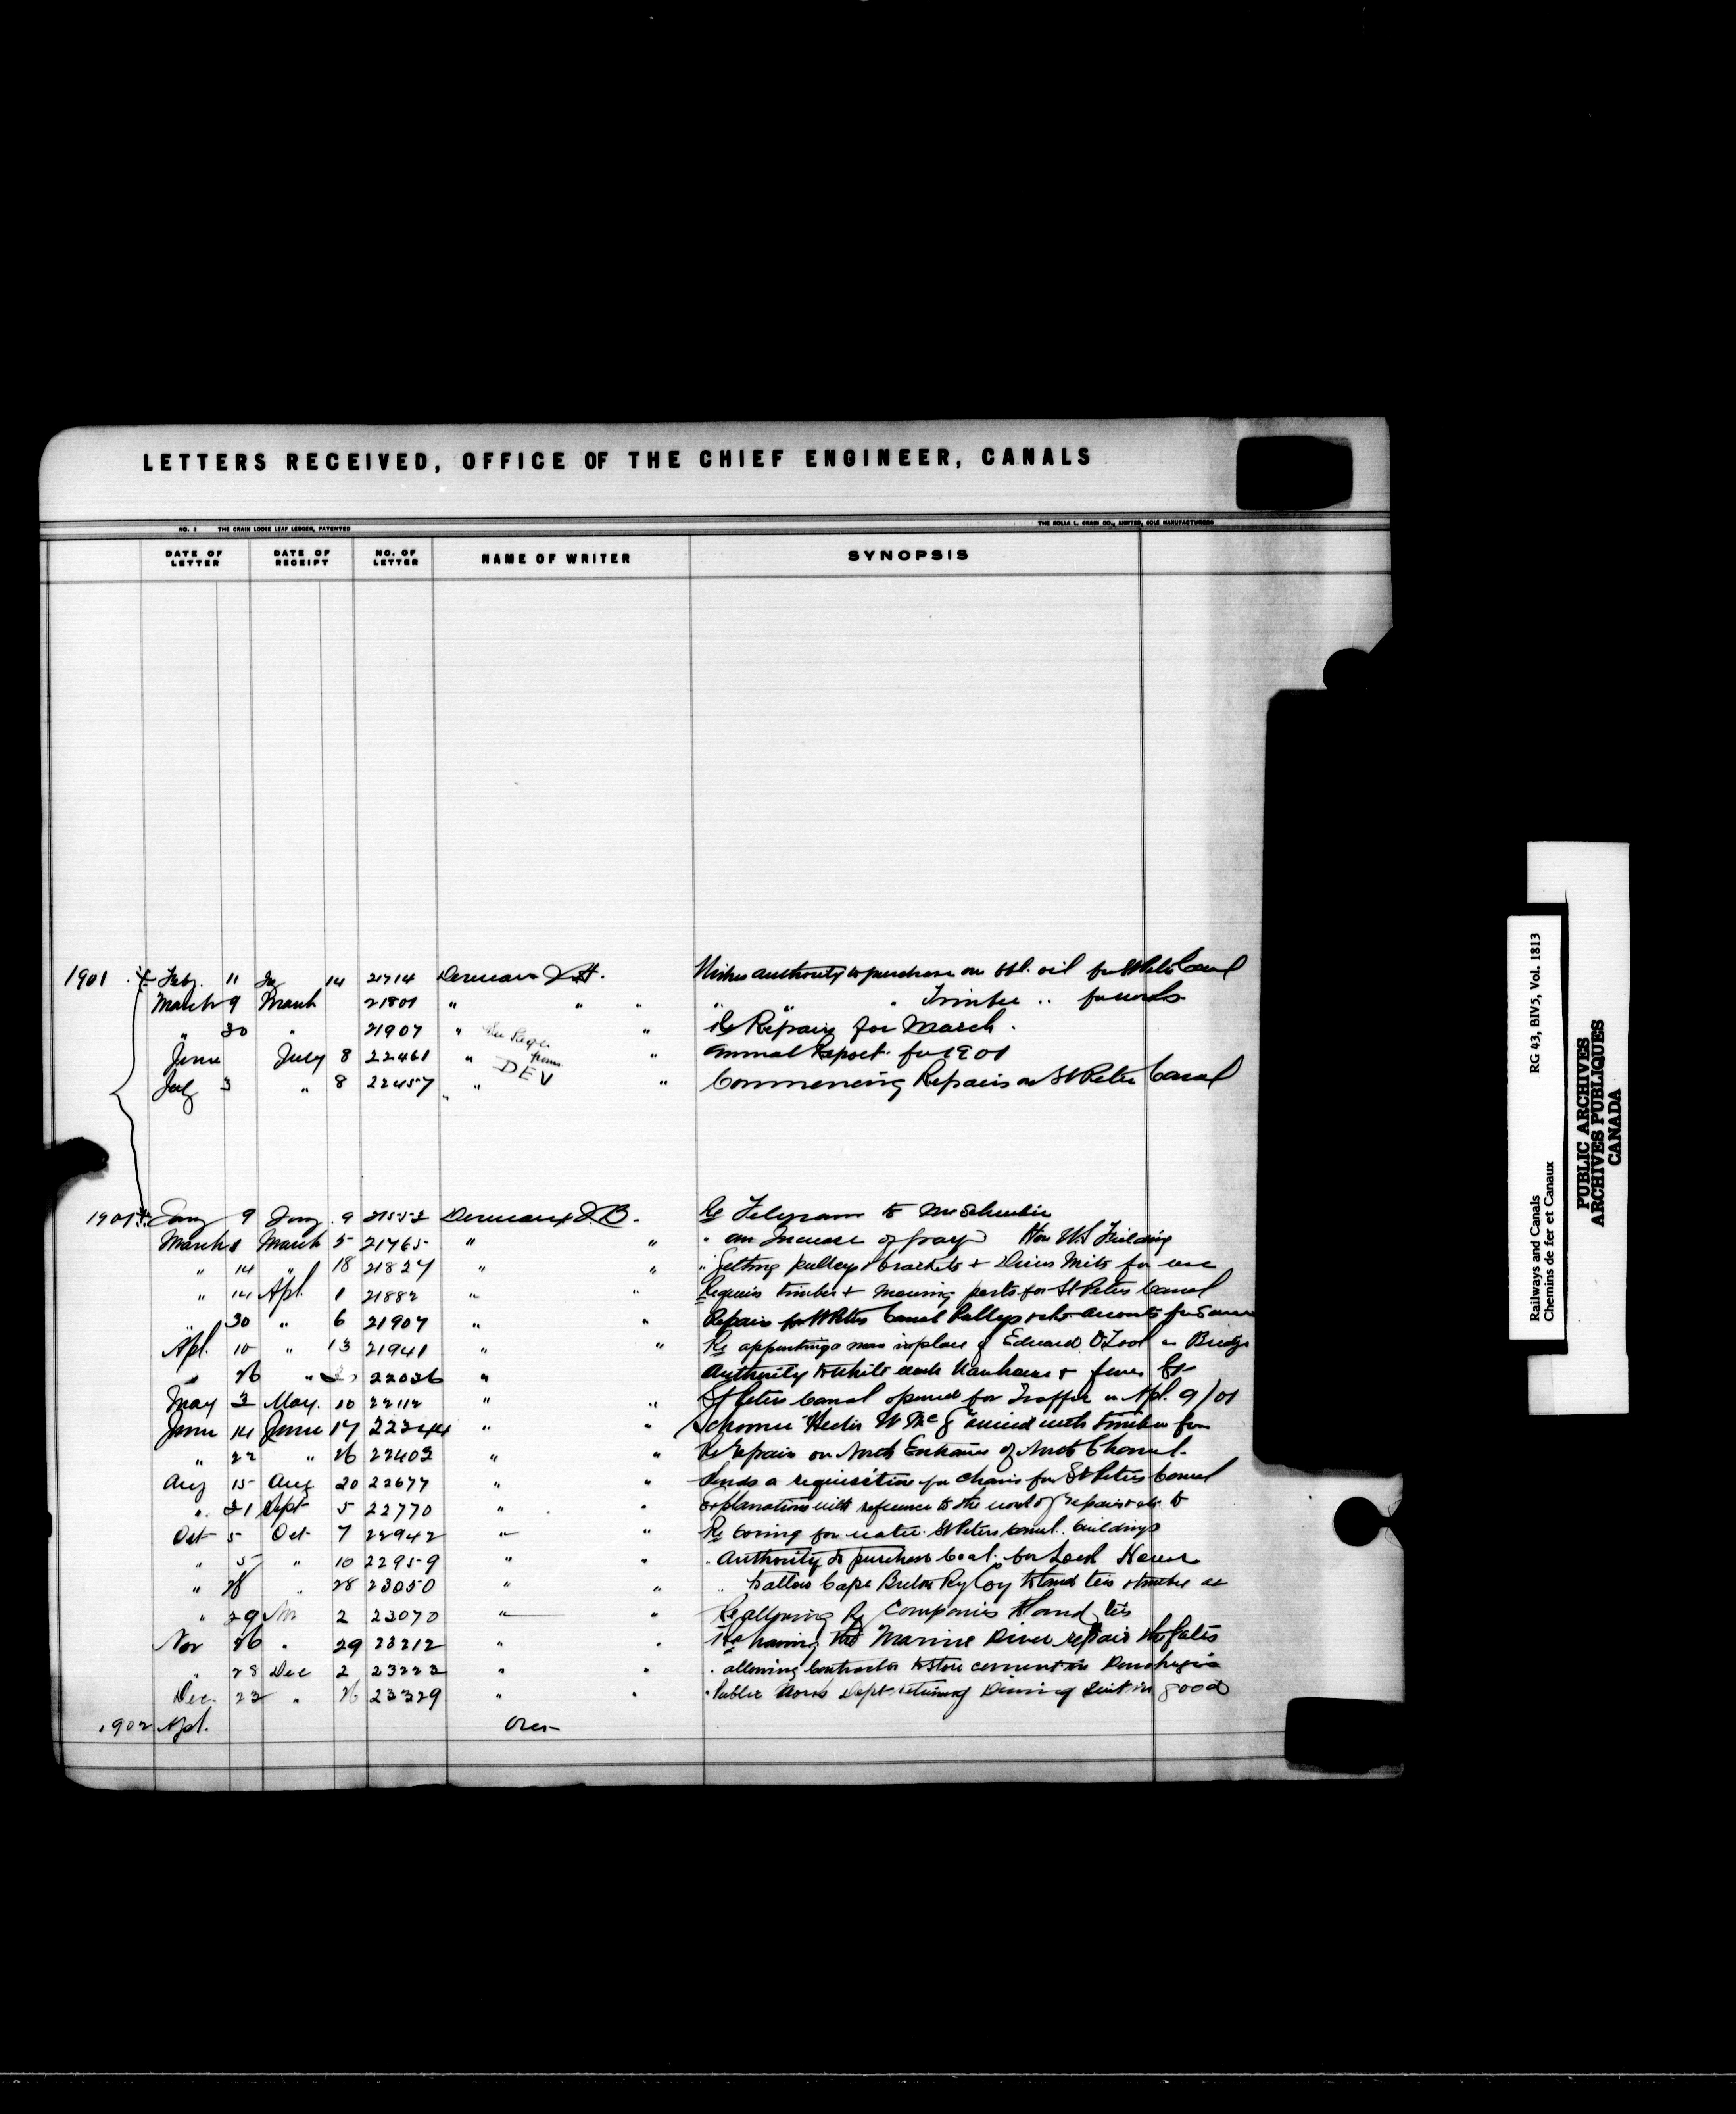 LETTERS RECEIVED, OFFICE OF THE CHIEF ENGINEER, CANALS
NO. 1 THE CRAIN LOOSE LEAF LEDGER, PATENTED THE ROLLA L. CRAIN CO., LIMITED, SOLE MANUFACTURERS
DATE OF LETTER DATE OF RECEIPT NO. OF LETTER NAME OF WRITER SYNOPSIS
1901 Feby. 11 14 21714 authority to purchase one bbl. oil for St Peters Canal
March 9 March 21801 " " " " " " Timber "
" 30 " 21907 " " Re Repairs for March.
June July 8 22461 " " Annual Report for 1901
from
DEV
July 3 " 8 22457 " " Commencing Repairs on St Peters Canal
1901 Jany 9 Jany 9 21552 Re Telegram to Mr Schreiber
March 1 March 5 21765 " " " an Increase of pay Hon W S Fielding
" 14 " 18 21827 " " " Getting pulleys brackets + Divers Mits for use
" 14 Apl. 1 21882 " " Requires timber + mooring posts for St Peters Canal
" 30 " 6 21907 " " Repairs for St Peters Canal accounts for same
Apl. 10 " 13 21941 " " Re appointing a man in place of Edward as Bridge
" 26 " 22036 " Authority to white wash +
May 3 May. 10 22112 " " St Peters Canal opened for Traffic on Apl. 9/01
June 14 June 17 22344 " " Schooner "Hector W McG" arrived with timber for
" 22 " 26 22403 " " Re repairs on North Entrance of North Channel.
Aug 15 Aug 20 22677 " " Sends a requisition for chains for St Peters Canal
" 31 Sept 5 22770 " " Explanations with reference to the work of repairs etc to
Oct 5 Oct 7 22942 " " Re boring for water St Peters Canal buildings
" 5 " 10 22959 " " " Authority to purchase Coal for Lock House
" 28 23050 " " " to allow Cape Breton Ry Coy to land ties + timber at
" 29 2 23070 " " Re allowing Ry Companies to land ties
Nov 26 " 29 23212 " " Re having the Marine Diver repair the Gates
" 28 Dec 2 23223 " " " allowing Contractor to store cement in
Dec. 23 " 26 23329 " " " Public Works Dept. returning Diving Suit in good
1902 Apl. Over
RG 43, BIV5, Vol. 1813
Railways and Canals
Chemins de fer et Canaux
PUBLIC ARCHIVES
ARCHIVES PUBLIQUES
CANADA